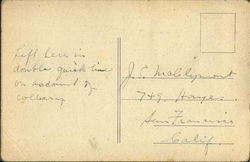 Left here in
double quick time
on account of
J. C. McClymont
749 Hayes
San Francisco
Calif